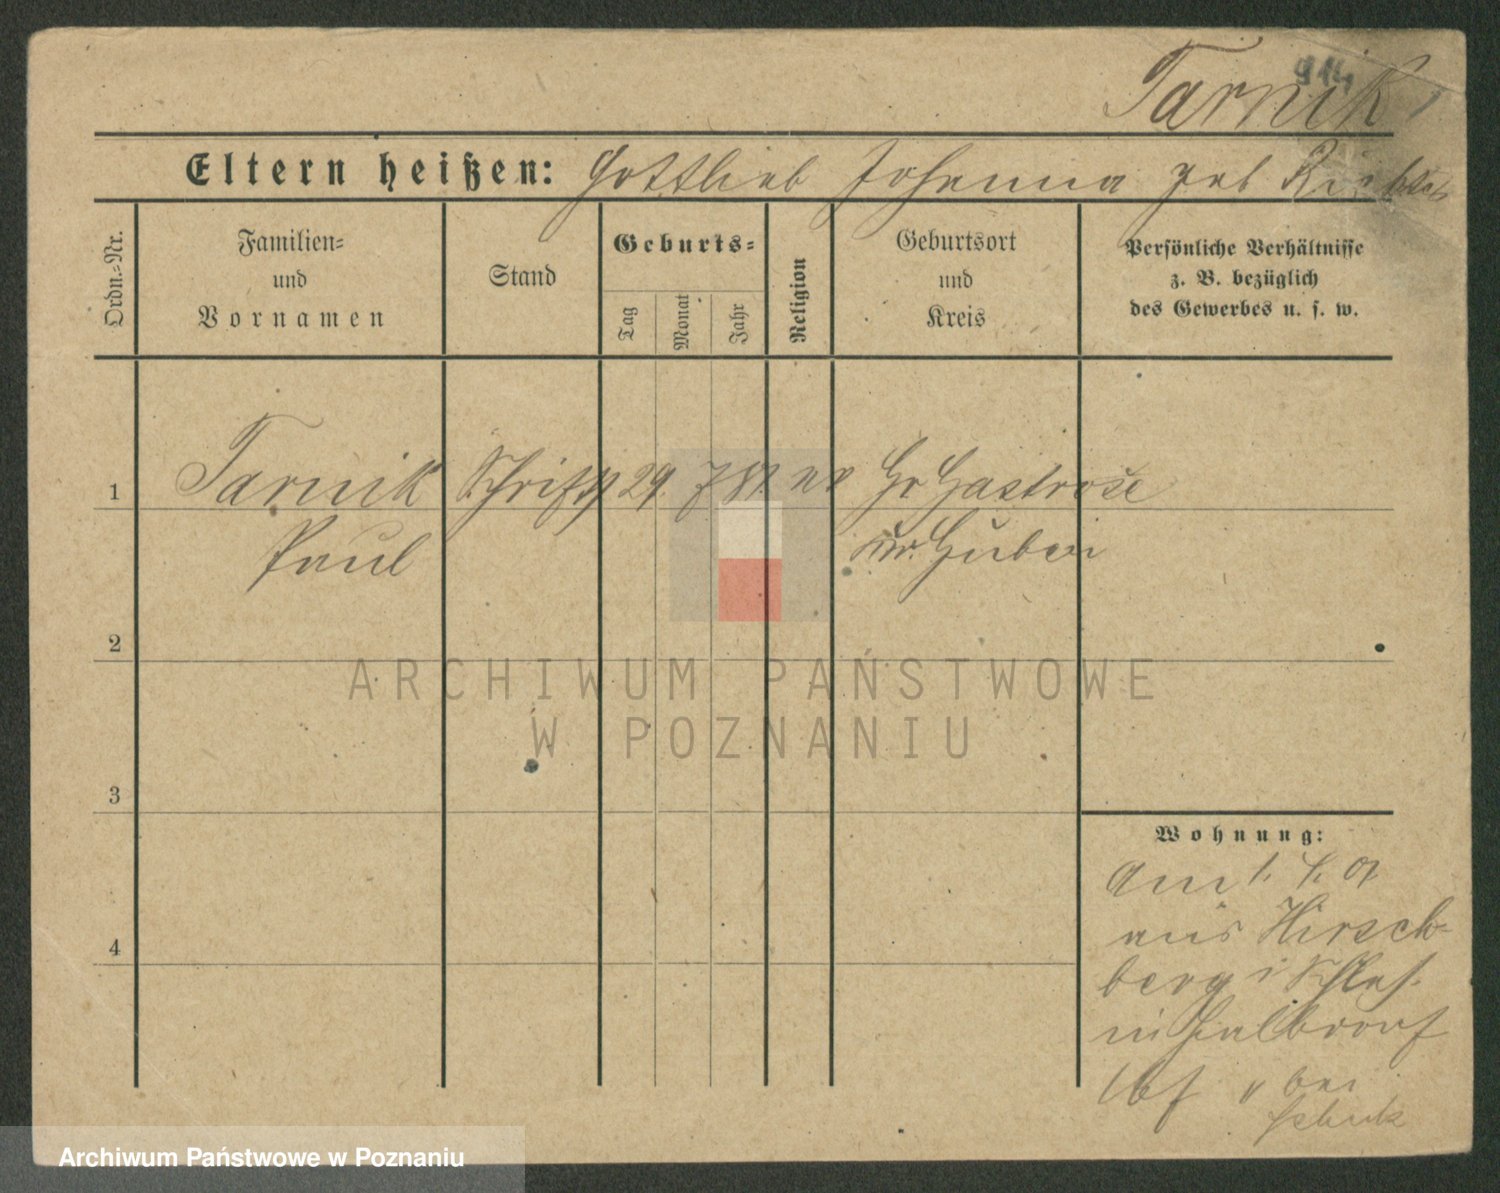 914
Tarnik
Eltern heißen: Gottlieb Johanna geb
Ordn.=Nr.
Familien=
und
Vornamen
Stand
Geburts=
Tag
Monat
Jahr
Religion
Geburtsort
und
Kreis
Persönliche Verhältnisse
z. B. bezüglich
des Gewerbes u. s. w.
1 Tarnik Schrifts 29. 7 81. ev Gr Gastrose
Paul Kr. Guben
2
3
4
Wohnung:
Am 1. 4. 01
aus Hirsch-
berg i Schles.
in
bei
ARCHIWUM PAŃSTWOWE
W POZNANIU
Archiwum Państwowe w Poznaniu